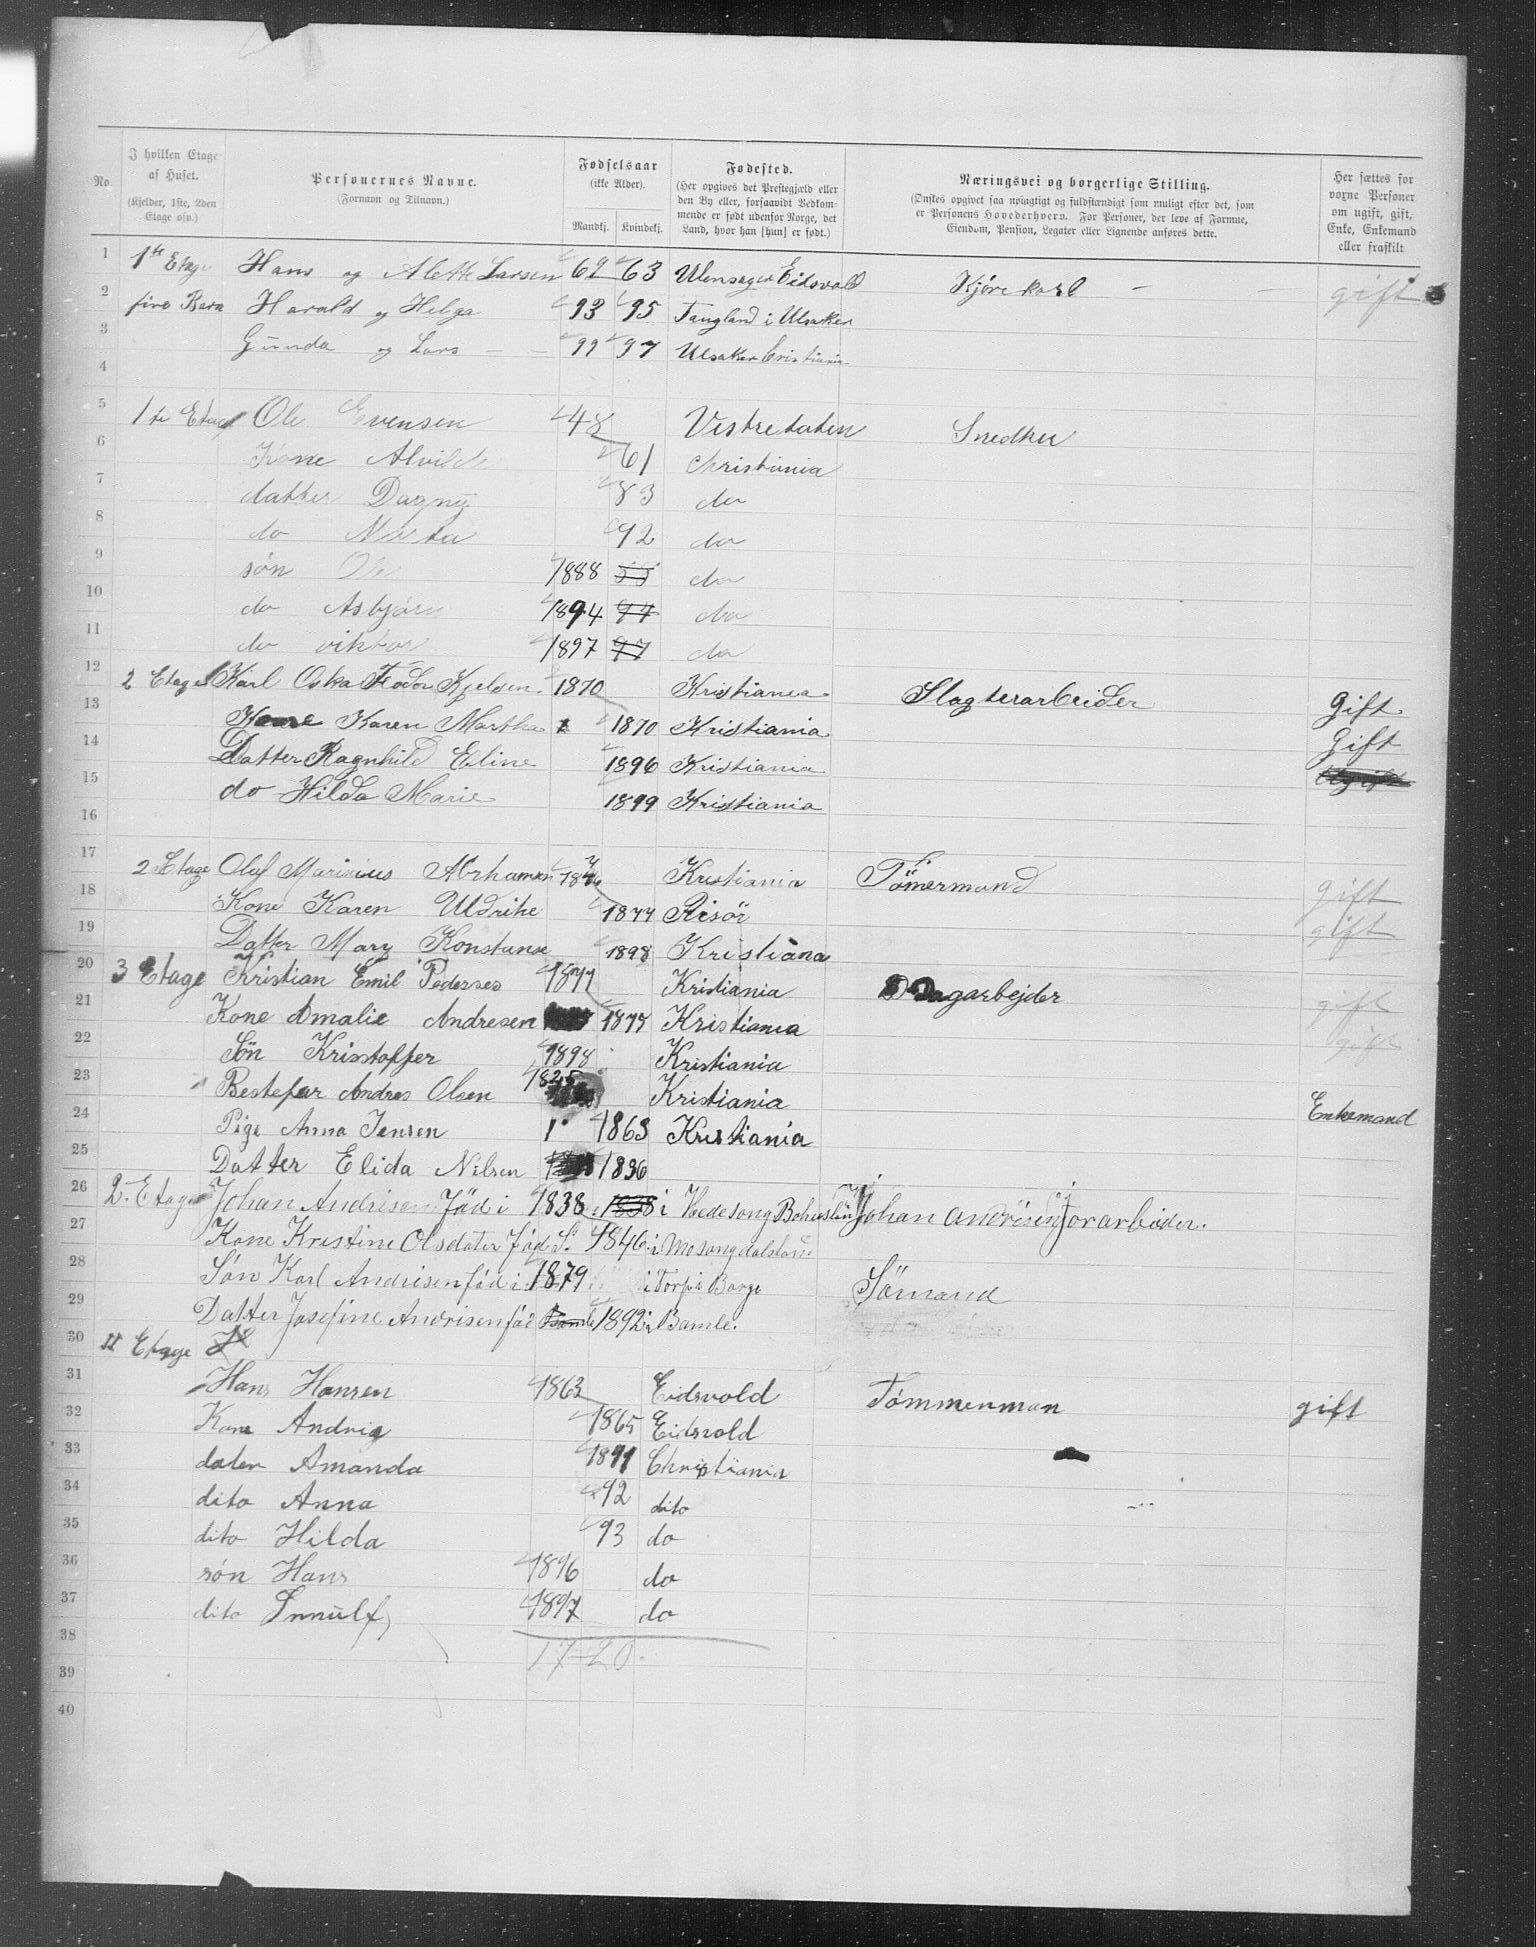 No.
I hvilken Etage af Huset. (Kjelder, 1ste, 2den Etage osv.)
Personernes Navne. (Fornavn og Tilnavn.)
Fødselsaar (ikke Alder). Mandkj. Kvindekj.
Fødested. (Her opgives det Prestegjæld eller den By eller, forsaavidt Vedkommende er født udenfor Norge, det Land, hvor han [hun] er født.)
Næringsvei og borgerlige Stilling. (Ønskes opgivet saa nøiagtigt og fuldstændigt som muligt efter det, som er Personens Hovederhverv. For Personer, der leve af Formue, Eiendom, Pension, Legater eller Lignende anføres dette.
Her sættes for voxne Personer om ugift, gift, Enke, Enkemand eller fraskilt
1 1ste Etage Hans og Alette Larsen 62 63 Ulensager Eidsvold Kjørekarl — — gift
2 fire Barn Harald og Helga 93 95 Tangland i Ulsaker
3 Gunda og Lars — — 99 97 Ulsaker Cristiania
4
5 1te Etage Ole Evensen 48 Vestretoten Snedker
6 Kone Alvilde 61 Christiania
7 datter Dagny 83 do
8 do Marta 92 do
9 søn Ole 1888 do
10 do Asbjørn 1894 97 do
11 do viktor 1897 97 do
12 2 Etage Karl Oska Feodor Kjelsen 1870 Kristiania Slagterarbeider Gift
13 Kone Karen Martha 1870 Kristiania Gift
14 Datter Ragnhild Eline 1896 Kristiania Ugift
15 do Hilda Marie 1899 Kristiania
16
17 2 Etage Oluf Marinius Abrhamsen Kristiania Tømermand gift
18 Kone Karen Uldrike 1877 Risör gift
19 Datter Mary Konstanse 1898 Kristiana
20 3 Etage Kristian Emil Pedersen 1877 Kristiania Dagarbejder gift
21 Kone Amalie Andresen 1877 Kristiania gift
22 Sön Kristoffer 1898 Kristiania
23 Bestefar Andres Olsen 1825 Kristiania Enkemand
24 Pige Anna Jensen 1 1863 Kristiania
25 Datter Elida Nilsen 1896
26 2. Etage Johan Andrisen Fød i 1838 1838 i Johan Andrisen
27 Kone Kristine Olsdater Fød 1846 i
28 Søn Karl Andrisen fød i 1879 i Torp i Borge Sömand
29 Datter Josefine Andrisen fød Bamle 1892 i Bamle.
30 II Etage
31 Hans Hansen 1863 Eidsvold Tømmenman gift
32 Kone Andria 1865 Eidsvold
33 dater Amanda 1891 Christiania
34 dito Anna 92 dito
35 dito Hilda 93 do
36 søn Hans 1896 do
37 dito 1897 do
38 17-20.
39
40